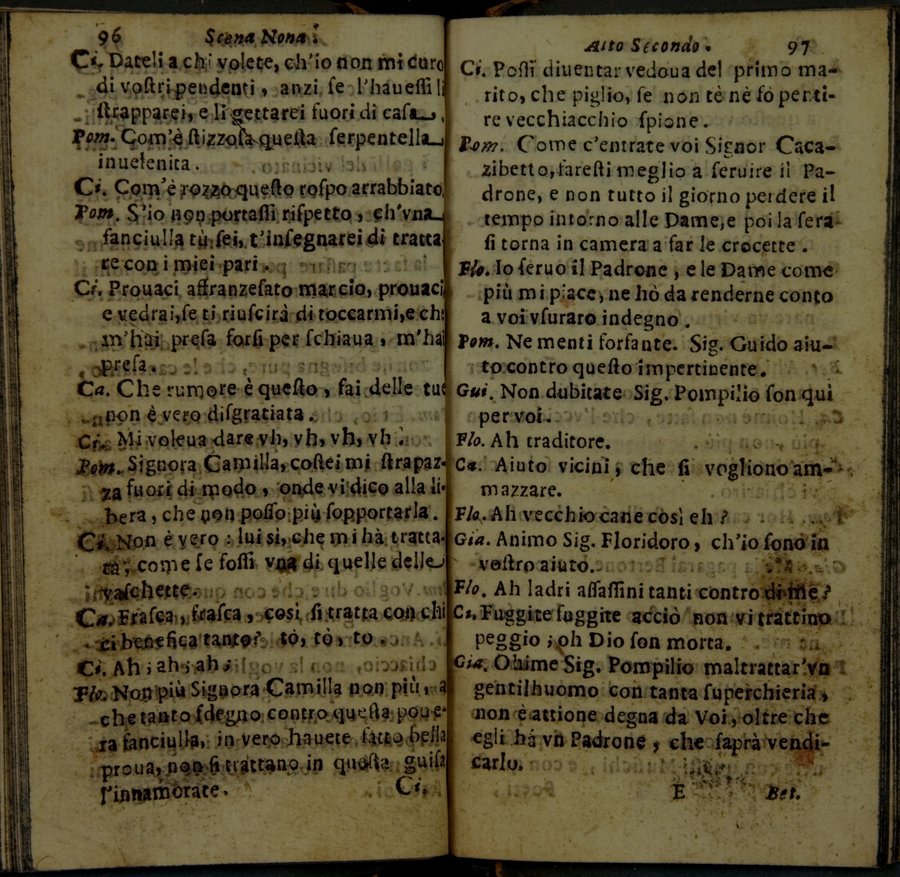 96 Scena Nona.
Ci. Dateli a chi volete, ch'io non mi curo
di voſtri pendenti, anzi ſe l'haueſſi li
ſtrapparei, e li gettarei fuori di caſa.
Pom. Com'è ſtizzoſa queſta ſerpentella
inuelenita.
Ci. Com'è rozzo queſto roſpo arrabbiato
Pom. S'io non portaſſi riſpetto, ch'vna
fanciulla tù ſei, t'inſegnarei di tratta
re con i miei pari.
Ci. Prouaci affranzeſato marcio, prouaci
e vedrai, ſe ti riuſcirà di toccarmi, e che
m'hai preſa forſi per ſchiaua, m'hai
preſa.
Ca. Che rumore è queſto, fai delle tue
non è vero diſgratiata.
Ci. Mi voleua dare vh, vh, vh, vh.
Pom. Signora Camilla, coſtei mi ſtrapaz-
za fuori di modo, onde vi dico alla li-
bera, che non poſſo più ſopportarla.
Ci. Non è vero: lui si, che mi hà tratta-
ta, come ſe foſſi vna di quelle delle
vaſchette.
Ca. Fraſca, fraſca, così ſi tratta con chi
ci benefica tanto? tò, tò, to.
Ci. Ah; ah; ah;
Flo. Non più Signora Camilla non più, a
che tanto ſdegno contro queſta poue-
ra fanciulla, in vero hauete fatto bella
proua, non ſi trattano in queſta guiſa
l'innamorate.
Ci.
Atto Secondo. 97
Ci. Poſſi diuentar vedoua del primo ma-
rito, che piglio, ſe non tè nè fò penti-
re vecchiacchio ſpione.
Pom. Come c'entrate voi Signor Caca-
zibetto, fareſti meglio a ſeruire il Pa-
drone, e non tutto il giorno perdere il
tempo intorno alle Dame, e poi la ſera
ſi torna in camera a far le crocette.
Flo. Io ſeruo il Padrone, e le Dame come
più mi piace, ne hò da renderne conto
a voi vſuraro indegno.
Pom. Ne menti forfante. Sig. Guido aiu-
to contro queſto impertinente.
Gui. Non dubitate Sig. Pompilio ſon quì
per voi.
Flo. Ah traditore.
Ca. Aiuto vicini, che ſi vogliono am-
mazzare.
Flo. Ah vecchio cane così eh?
Gia. Animo Sig. Floridoro, ch'io ſono in
voſtro aiuto.
Flo. Ah ladri aſſaſſini tanti contro di me?
Ci. Fuggite fuggite acciò non vi trattino
peggio; oh Dio ſon morta.
Gia. Ohime Sig. Pompilio maltrattar'vn
gentilhuomo con tanta ſuperchieria,
non è attione degna da Voi, oltre che
egli hà vn Padrone, che ſaprà vendi-
carlo.
E Bet.